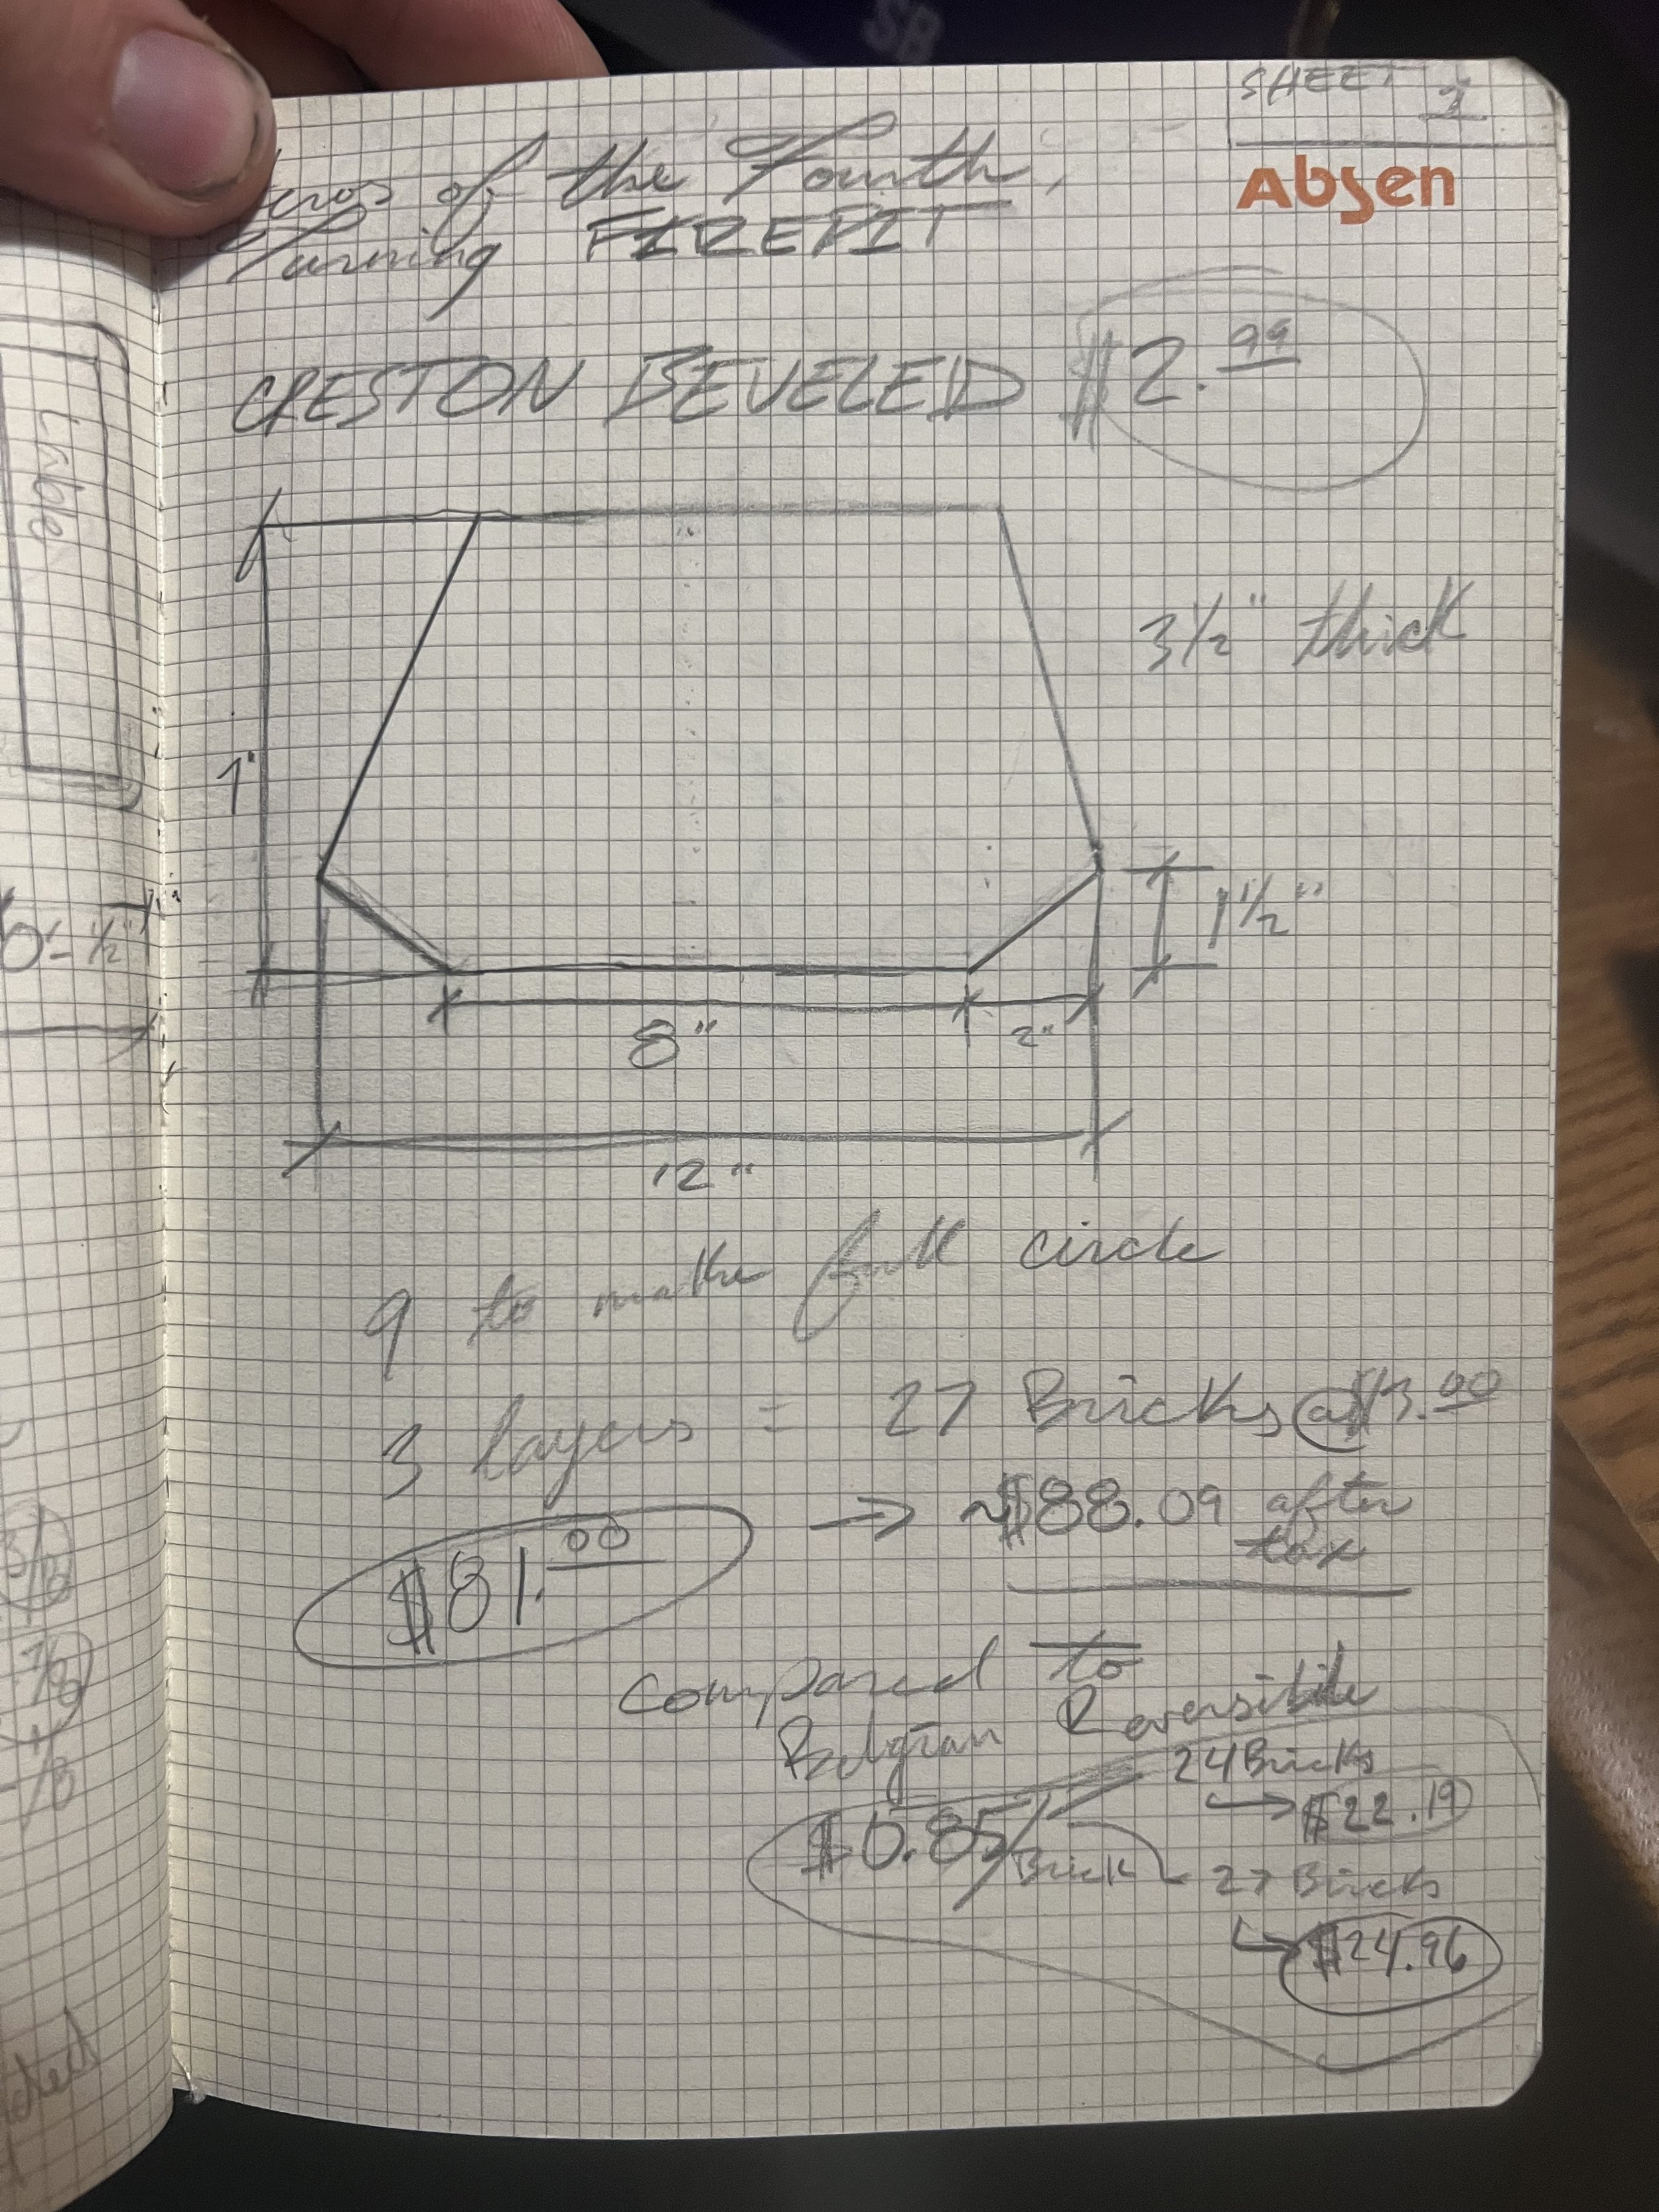 SHEET 1
Absen
of the Fourth,
Turning FIREPIT
CRESTON BEVELED $2.99
3 1/2" thick
7"
1 1/2"
8" 2"
12"
9 to make full circle
3 layers = 27 Bricks @ $3.00
$81.00 → ~$88.09 after
tax
compared to
Belgian Reversible
24 Bricks
→ $22.19
$0.85/Brick
27 Bricks
↳ $24.96
table
0'-1/2"